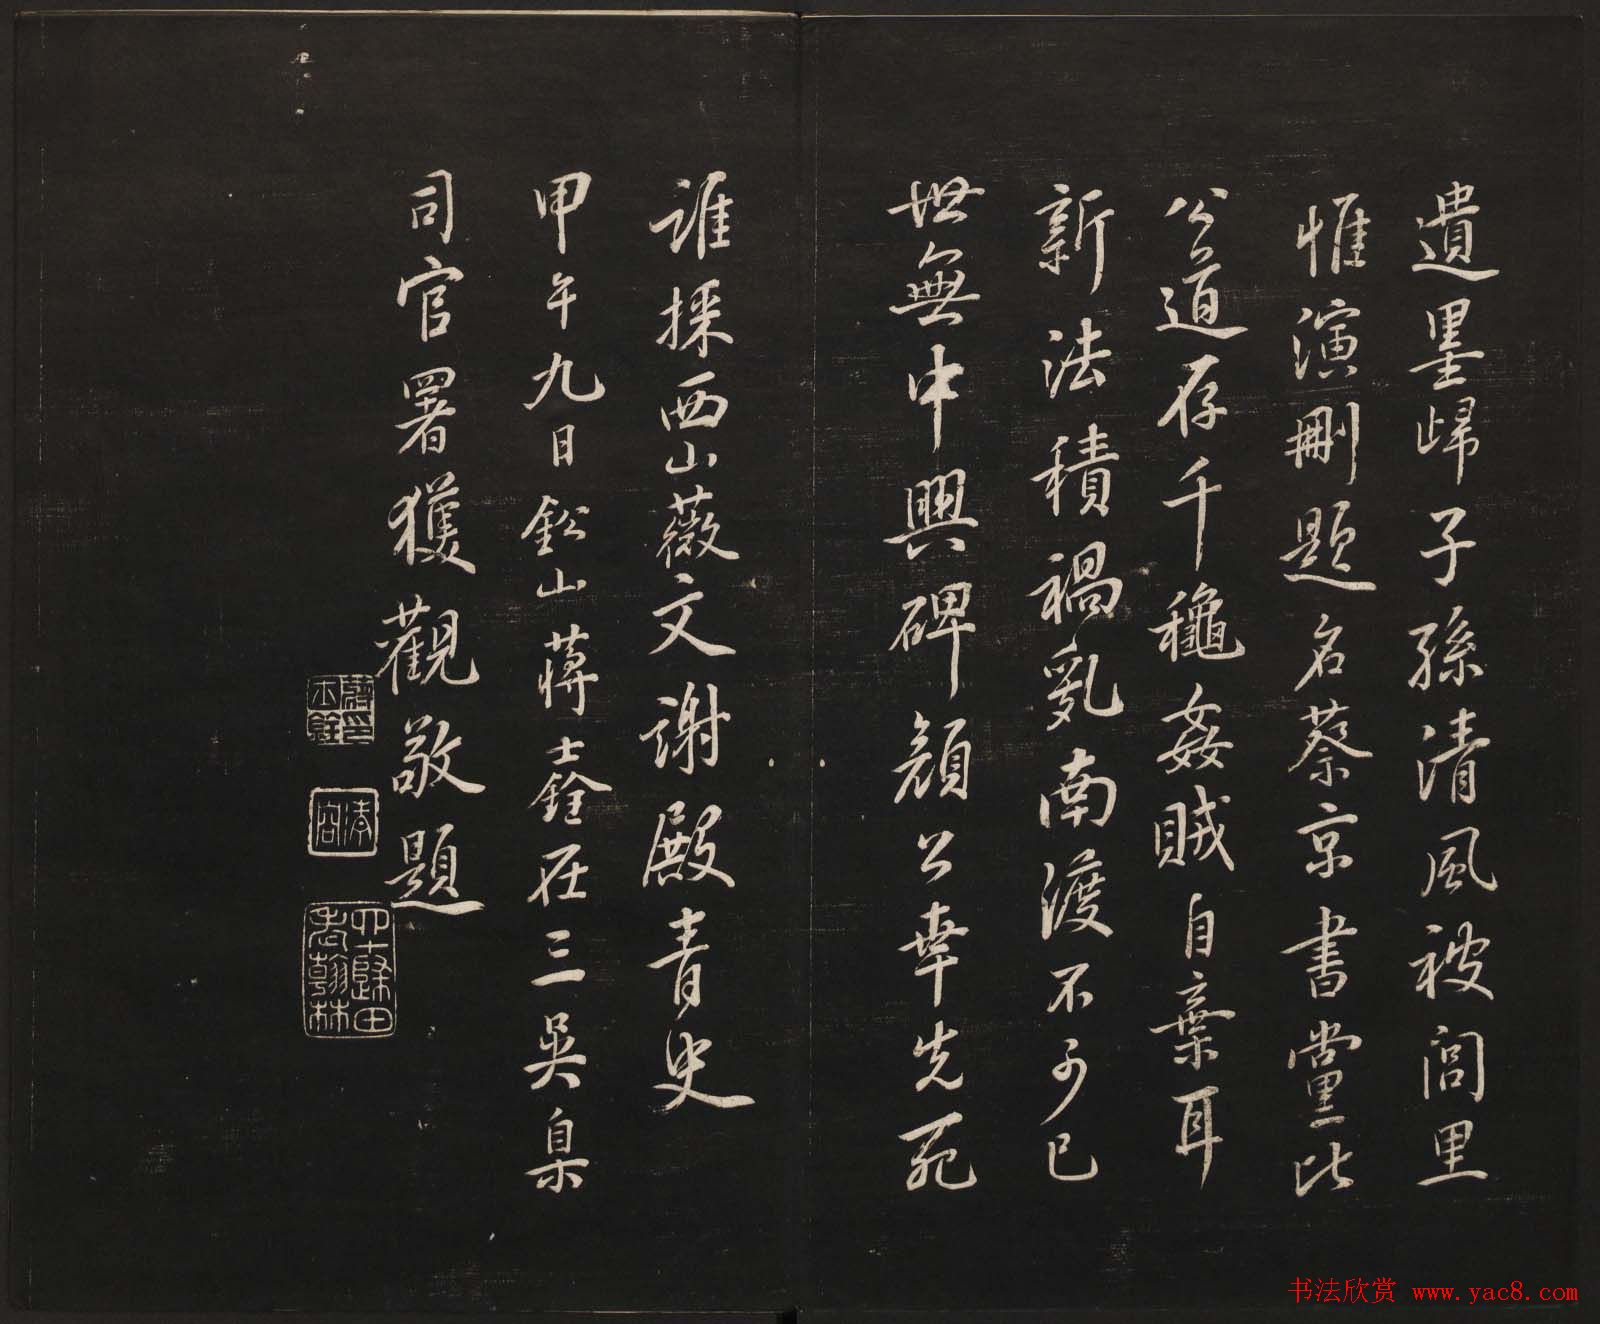 遺墨歸子孫清風被閭里
惟演刪題名蔡京書黨比
公道存千穐姦賊自棄耳
新法積禍亂南渡不可已
世無中興碑顏公幸先死
誰採西山薇文謝殿青史
甲午九日鉛山蔣士銓在三吳臬
司官署獲觀敬題
蔣印士銓
清容
四十歸田老翰林
书法欣赏 www.yac8.com